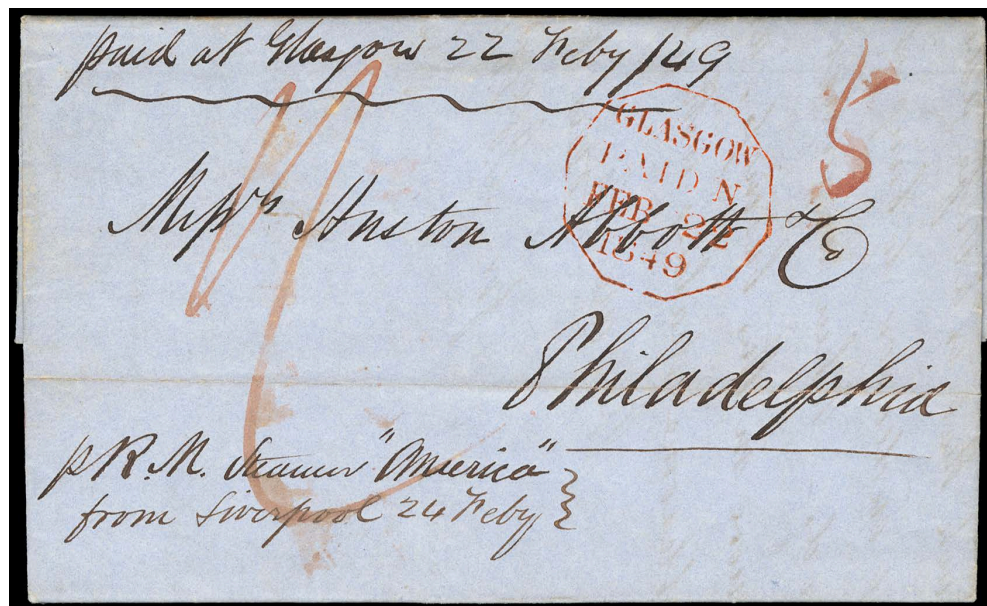 paid at Glasgow 22 Feby /49
5
GLASGOW
PAID N
FEB 22
1849
Messrs Huston Abbott & Co
Philadelphia
p R. M. Steamer "America"
from Liverpool 24 Feby